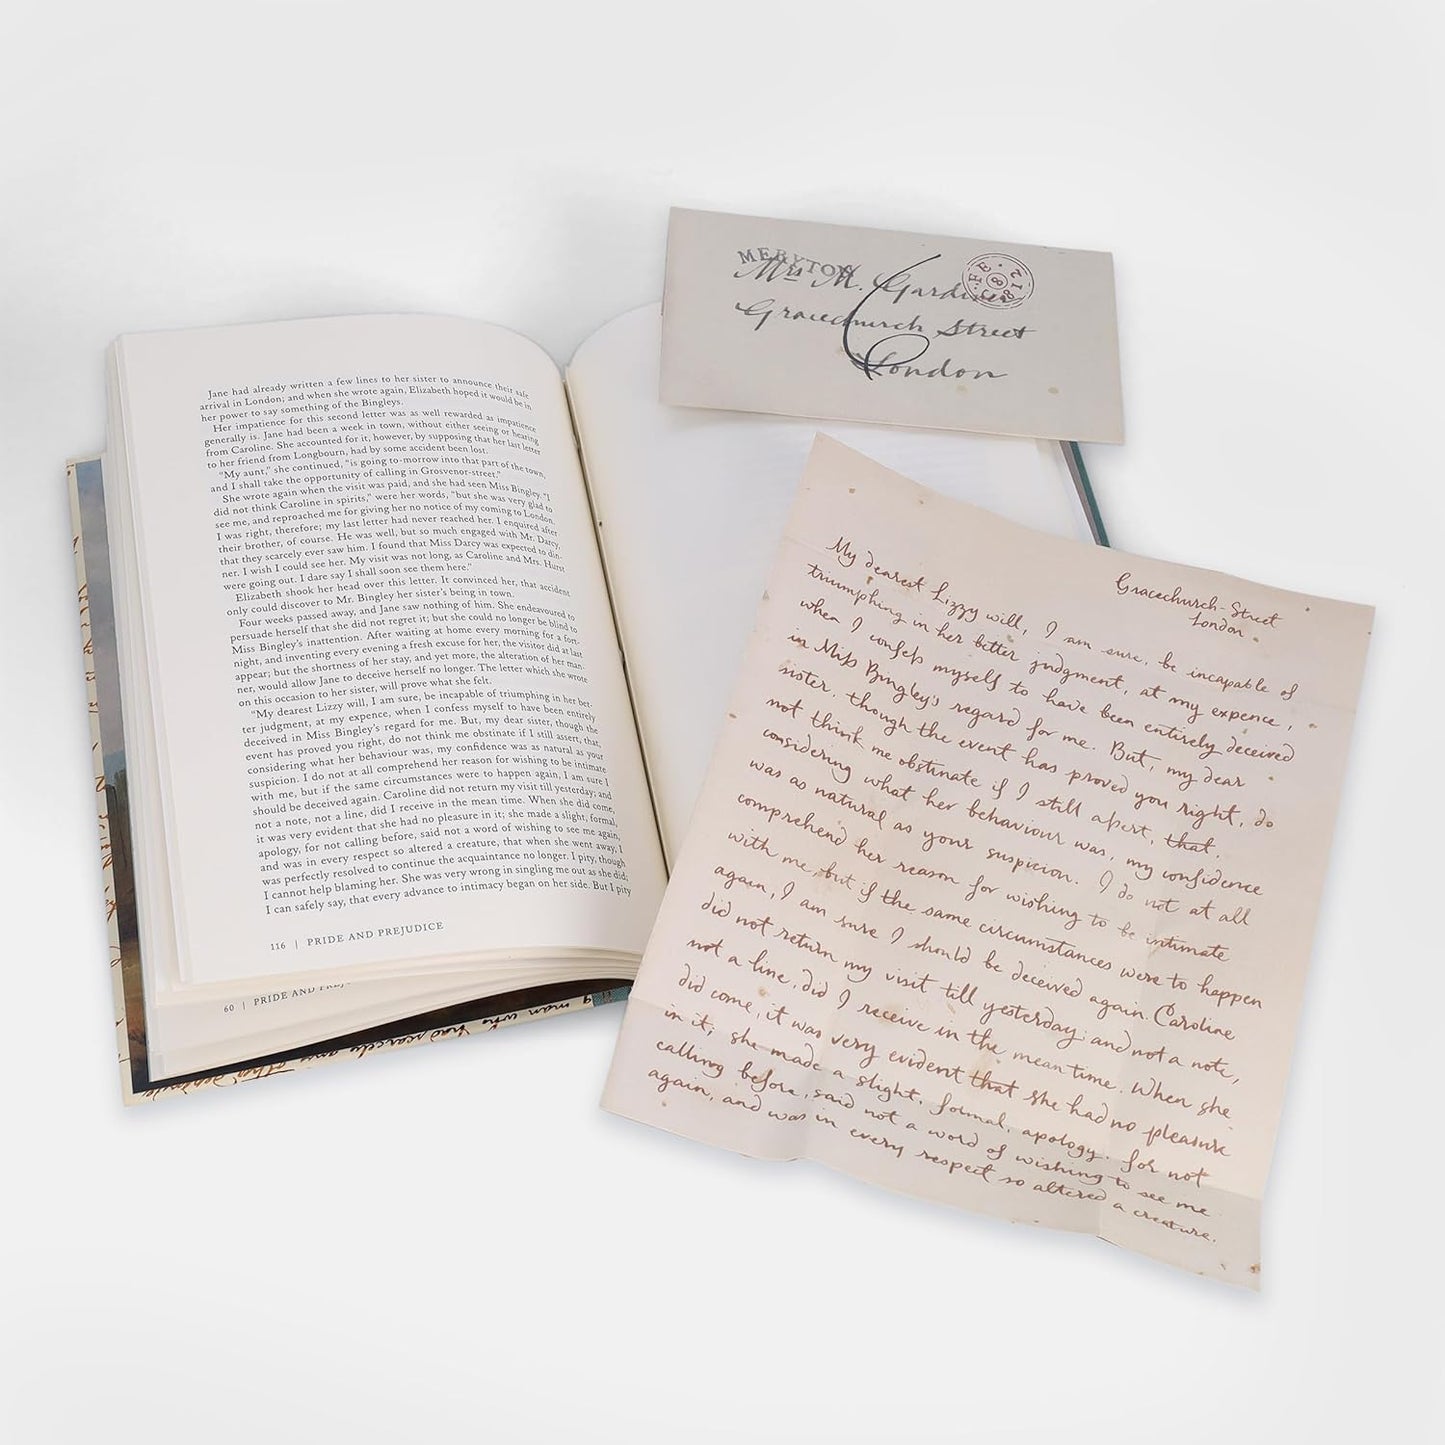 Jane had already written a few lines to her sister to announce their safe
arrival in London; and when she wrote again, Elizabeth hoped it would be in
her power to say something of the Bingleys.
Her impatience for this second letter was as well rewarded as impatience
generally is. Jane had been a week in town, without either seeing or hearing
from Caroline. She accounted for it, however, by supposing that her last letter
to her friend from Longbourn, had by some accident been lost.
"My aunt," she continued, "is going to-morrow into that part of the town,
and I shall take the opportunity of calling in Grosvenor-street."
She wrote again when the visit was paid, and she had seen Miss Bingley. "I
did not think Caroline in spirits," were her words, "but she was very glad to
see me, and reproached me for giving her no notice of my coming to London.
I was right, therefore; my last letter had never reached her. I enquired after
their brother, of course. He was well, but so much engaged with Mr. Darcy,
that they scarcely ever saw him. I found that Miss Darcy was expected to din-
ner. I wish I could see her. My visit was not long, as Caroline and Mrs. Hurst
were going out. I dare say I shall soon see them here."
Elizabeth shook her head over this letter. It convinced her, that accident
only could discover to Mr. Bingley her sister's being in town.
Four weeks passed away, and Jane saw nothing of him. She endeavoured to
persuade herself that she did not regret it; but she could no longer be blind to
Miss Bingley's inattention. After waiting at home every morning for a fort-
night, and inventing every evening a fresh excuse for her, the visitor did at last
appear; but the shortness of her stay, and yet more, the alteration of her man-
ner, would allow Jane to deceive herself no longer. The letter which she wrote
on this occasion to her sister, will prove what she felt.
"My dearest Lizzy will, I am sure, be incapable of triumphing in her bet-
ter judgment, at my expence, when I confess myself to have been entirely
deceived in Miss Bingley's regard for me. But, my dear sister, though the
event has proved you right, do not think me obstinate if I still assert, that,
considering what her behaviour was, my confidence was as natural as your
suspicion. I do not at all comprehend her reason for wishing to be intimate
with me, but if the same circumstances were to happen again, I am sure I
should be deceived again. Caroline did not return my visit till yesterday; and
not a note, not a line, did I receive in the mean time. When she did come,
it was very evident that she had no pleasure in it; she made a slight, formal,
apology, for not calling before, said not a word of wishing to see me again,
and was in every respect so altered a creature, that when she went away, I
was perfectly resolved to continue the acquaintance no longer. I pity, though
I cannot help blaming her. She was very wrong in singling me out as she did;
I can safely say, that every advance to intimacy began on her side. But I pity
116 | PRIDE AND PREJUDICE
60 | PRIDE AND PREJU
man who had scarcely any other
MERYTON
Mrs M. Gardiner
Gracechurch Street
London
FE 12 88
Gracechurch-Street
London.
My dearest Lizzy will, I am sure, be incapable of
triumphing in her better judgment, at my expence,
when I confess myself to have been entirely deceived
in Miss Bingley's regard for me. But, my dear
sister, though the event has proved you right, do
not think me obstinate if I still assert, that,
considering what her behaviour was, my confidence
was as natural as your suspicion. I do not at all
comprehend her reason for wishing to be intimate
with me, but if the same circumstances were to happen
again, I am sure I should be deceived again. Caroline
did not return my visit till yesterday; and not a note,
not a line, did I receive in the mean time. When she
did come, it was very evident that she had no pleasure
in it; she made a slight, formal, apology, for not
calling before, said not a word of wishing to see me
again, and was in every respect so altered a creature.